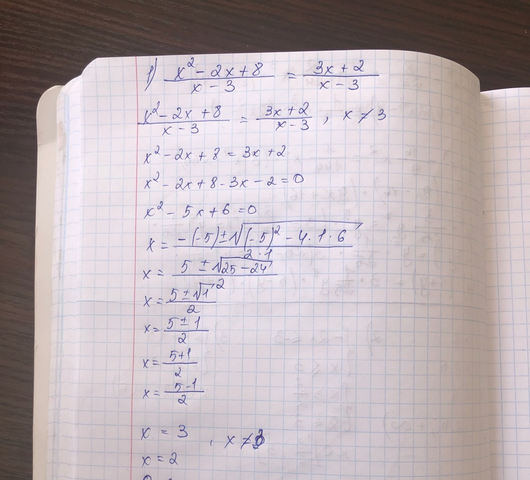 1) (x² - 2x + 8)/(x - 3) = (3x + 2)/(x - 3)
(x² - 2x + 8)/(x - 3) = (3x + 2)/(x - 3), x ≠ 3
x² - 2x + 8 = 3x + 2
x² - 2x + 8 - 3x - 2 = 0
x² - 5x + 6 = 0
x = (-(-5) ± √((-5)² - 4 · 1 · 6))/(2 · 1)
x = (5 ± √(25 - 24))/2
x = (5 ± √1)/2
x = (5 ± 1)/2
x = (5 + 1)/2
x = (5 - 1)/2
x = 3 , x ≠ 3
x = 2